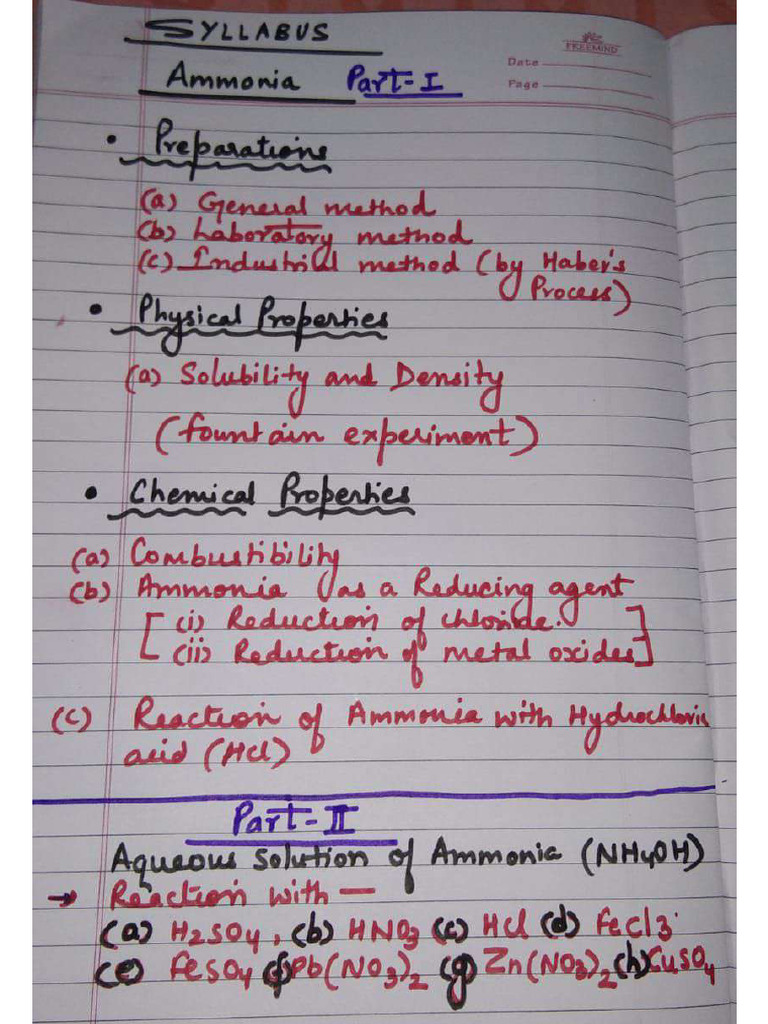 SYLLABUS
FREEMIND
Date
Ammonia Part-I
Page
• Preparations
(a) General method
(b) Laboratory method
(c) Industrial method (by Haber's
Process)
• Physical Properties
(a) Solubility and Density
(fountain experiment)
• Chemical Properties
(a) Combustibility
(b) Ammonia as a Reducing agent
[(i) Reduction of chloride.
(ii) Reduction of metal oxides]
(c) Reaction of Ammonia with Hydrochloric
acid (HCl)
Part-II
Aqueous solution of Ammonia (NH4OH)
→ Reaction with —
(a) H2SO4, (b) HNO3 (c) HCl (d) FeCl3.
(e) FeSO4 (f) Pb(NO3)2 (g) Zn(NO3)2 (h) CuSO4